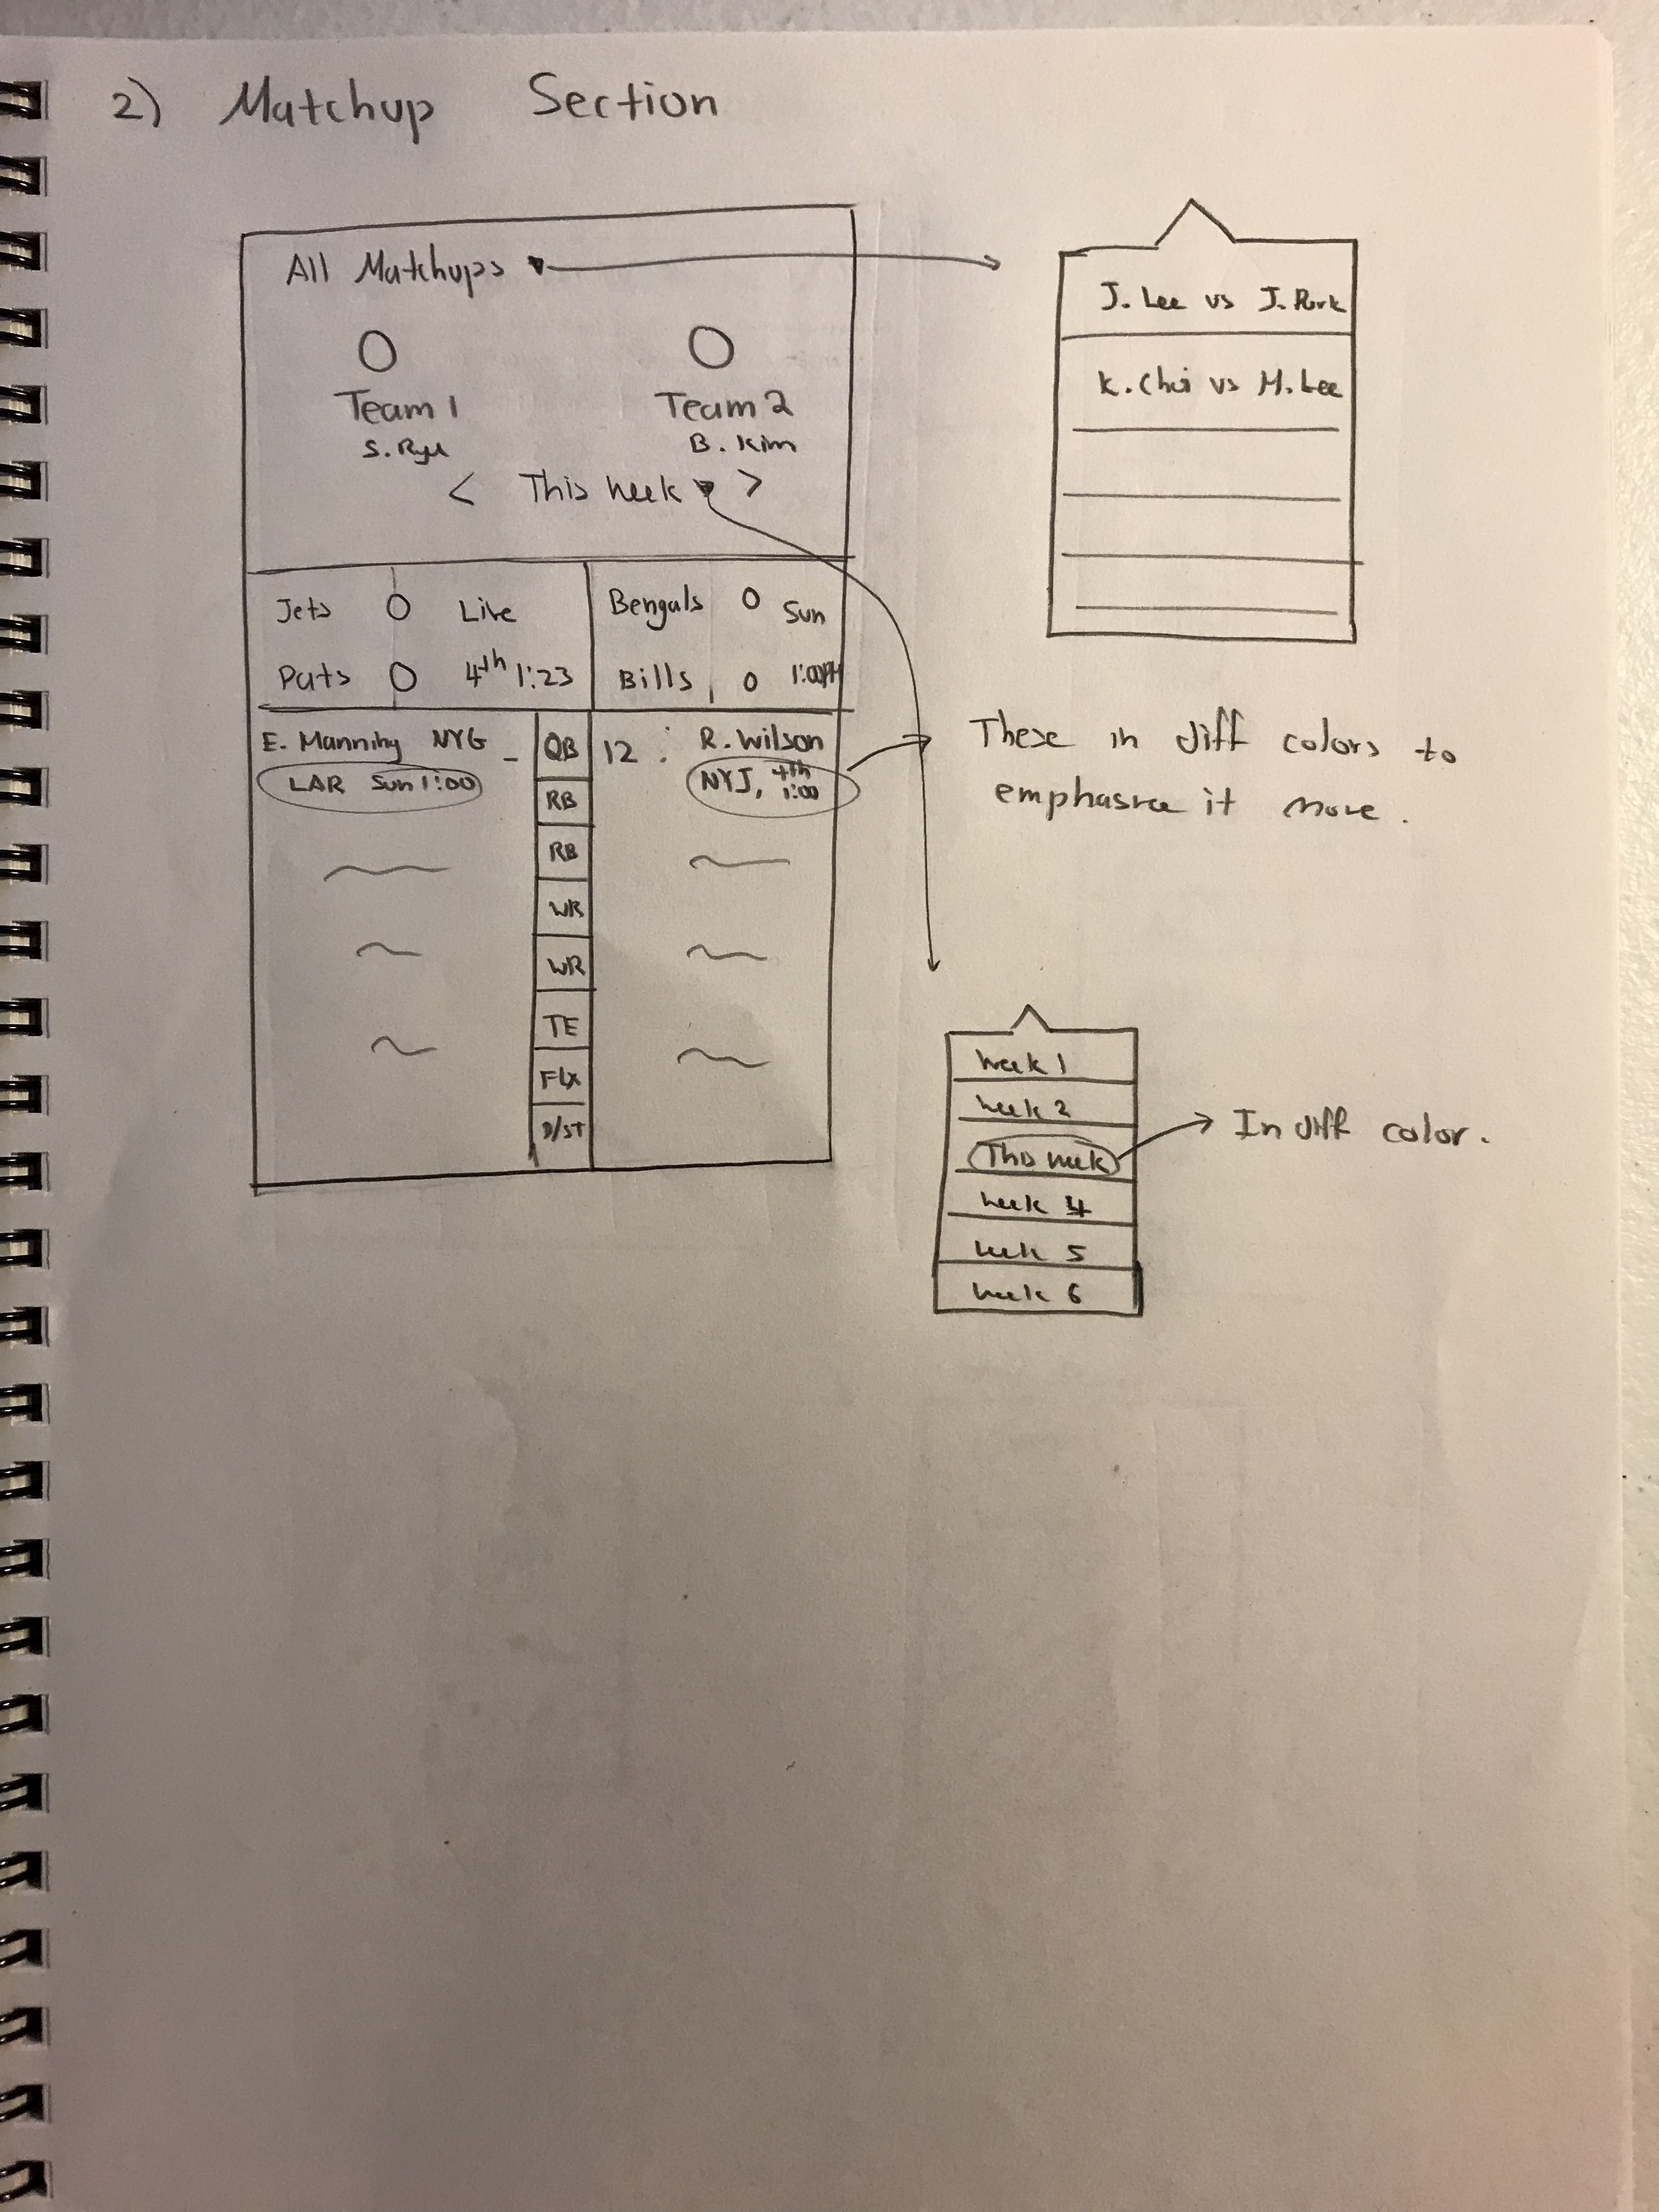 2) Matchup Section
All Matchups
Team 1
Team 2
S. Ryu
B. Kim
< This week >
Jets 0 Live
Pats 0 4th 1:23
Bengals 0 Sun
Bills 0 1:00PM
E. Manning NYG -
LAR Sun 1:00
QB
RB
RB
WR
WR
TE
FLX
D/ST
12
R. Wilson
NYJ, 4th 1:00
J. Lee vs J. Park
K. Choi vs M. Lee
These in diff colors to
emphasize it more.
Week 1
Week 2
This week
Week 4
Week 5
Week 6
In diff color.